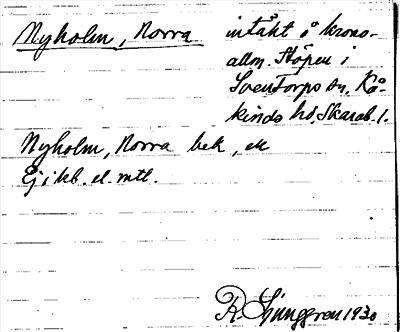 Nyholm, Norra
intäkt å krono-
allm. Stöpen i
Sventorps sn, Kå-
kinds hd, Skarab. l.
Nyholm, Norra bek, ek
Ej i kb. el. mtl.
R. Ljunggren 1930